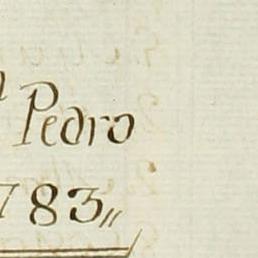 Pedro
783,,